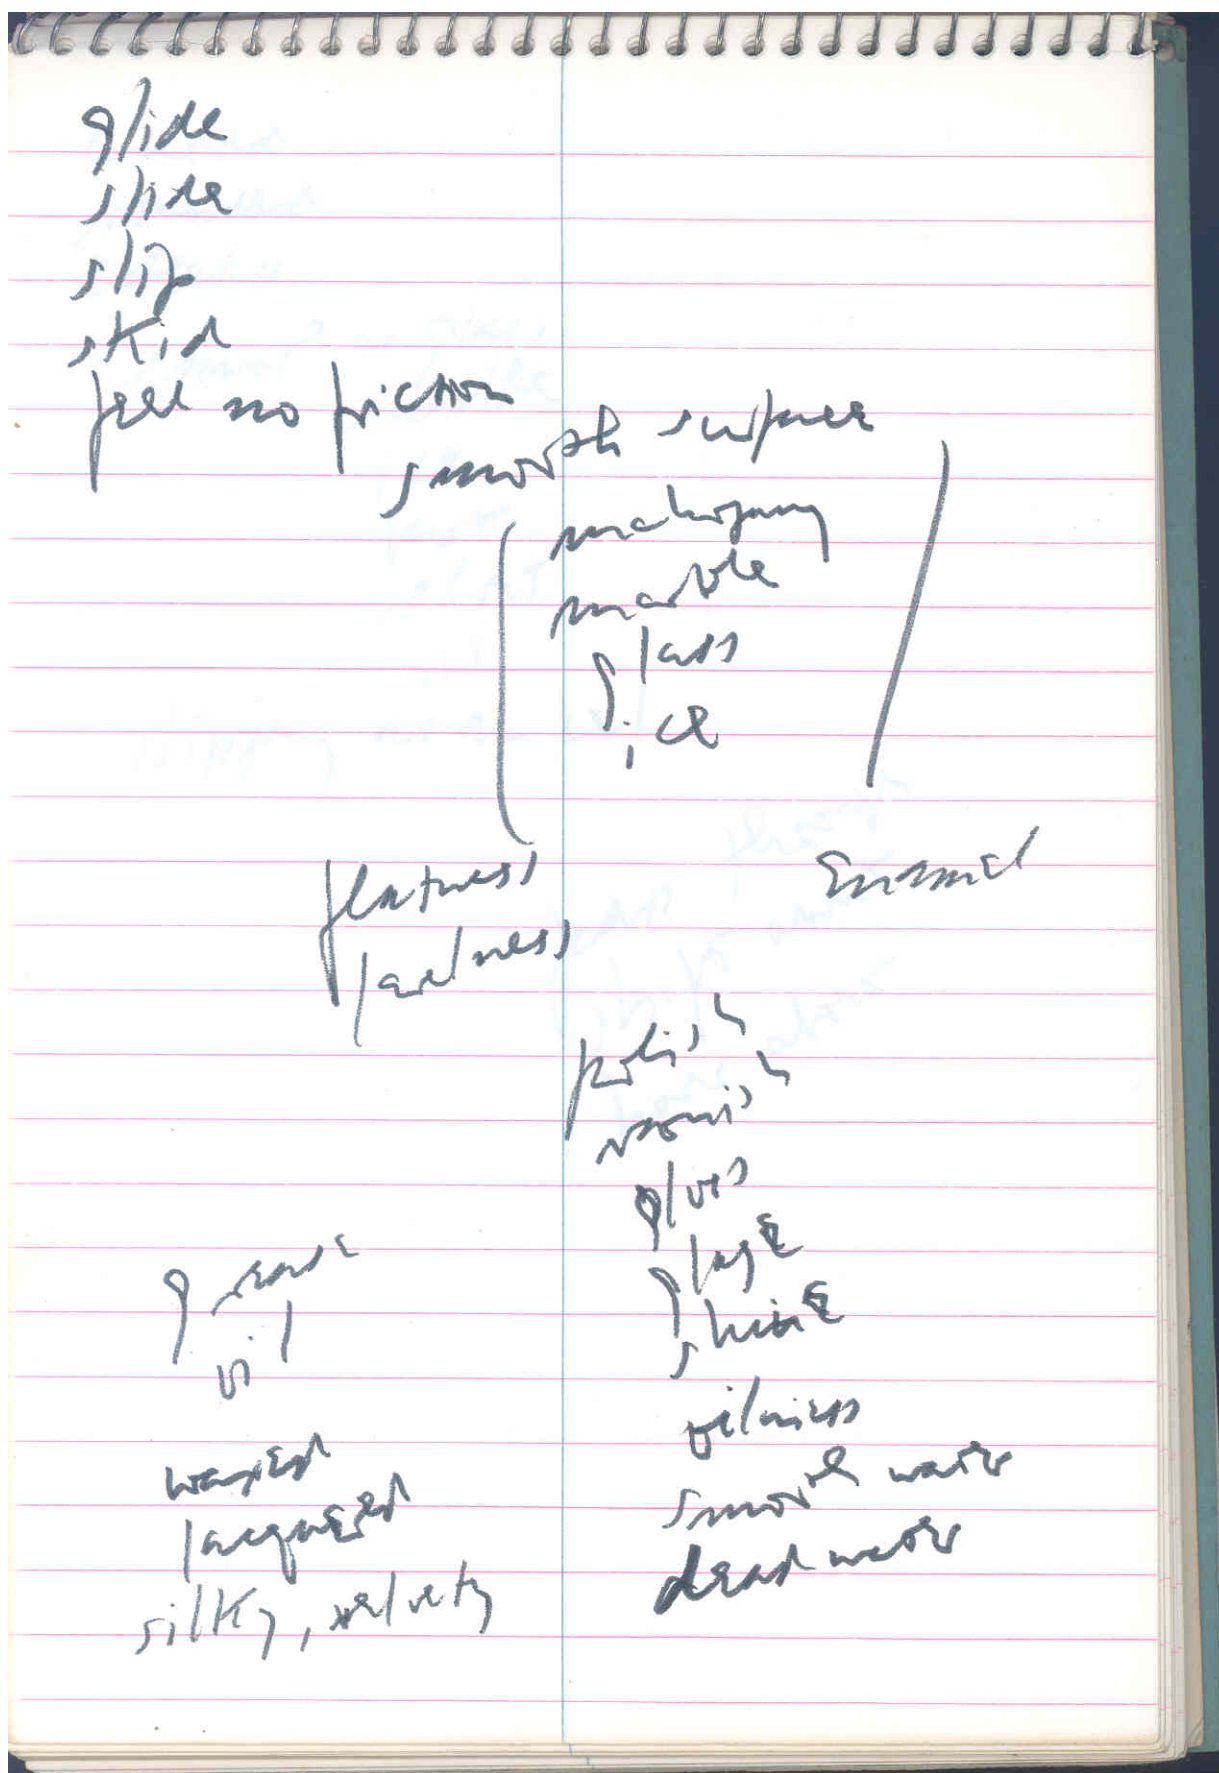 glide
slide
slip
skid
feel no friction
smooth surface
mahogany
marble
glass
ice
flatness
Enamel
levelness
polish
varnish
gloss
glaze
shine
oiliness
smooth water
dead water
grease
oil
waxed
lacquered
silky, velvety